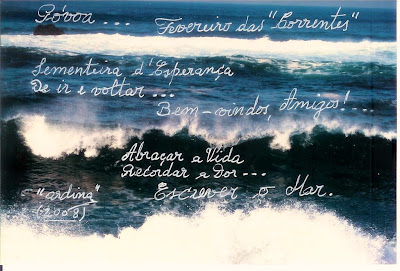 Póvoa...
Fevereiro das "Correntes"
Sementeira d'Esperança
De ir e voltar...
Bem-vindos, Amigos!...
Abraçar a Vida
Recordar a Dor...
Escrever o Mar.
"ardina"
(2008)